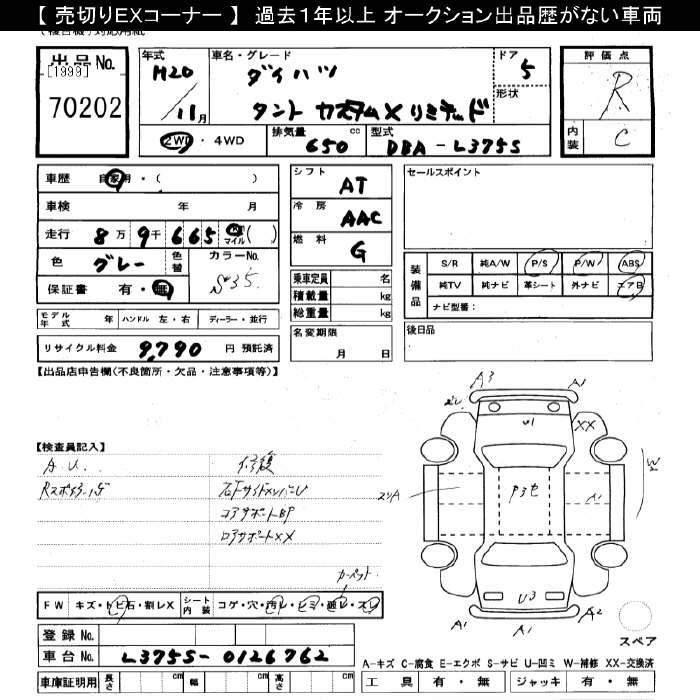 【 売切りEXコーナー 】 過去1年以上 オークション出品歴がない車両
出 品 No.
[1999]
70202
年式
H20
/11月
車名・グレード
ダイハツ
タント カスタムX リミテッド
ドア
5
形状
評 価 点
R
内装
C
2WD ・ 4WD
排気量
650 cc
型式
DBA - L375S
車歴
自家用 ・ ( )
車検
年 月
走行
8万 9千 665 km マイル ( )
色
グレー
色替
カラーNo.
S35
保証書
有 ・ 無
モデル年式
年
ハンドル 左 ・ 右
ディーラー ・ 並行
リサイクル料金
9,790 円 預託済
シフト
AT
冷 房
AAC
燃 料
G
乗車定員 名
積載量 kg
総重量 kg
名変期限
月 日
セールスポイント
装備品
S/R 純A/W P/S P/W ABS
純TV 純ナビ 革シート 外ナビ エアB
ナビ型番：
後日品
【出品店申告欄(不良箇所・欠品・注意事項等)】
【検査員記入】
A.U.
修復
右Fサイドメンバー U
コアサポートBP
ロアサポートXX
カーペット
A3
A1
U1
XX
W2
A1
U3
A1
A1
A2
スペア
FW キズ・トビ石・割レX
シート内装 コゲ・穴・汚レ・シミ・破レ・スレ
登 録 No.
車 台 No.
L375S- 0126762
車庫証明用 長さ cm 幅 cm 高さ cm
A-キズ C-腐食 E-エクボ S-サビ U-凹ミ W-補修 XX-交換済
工 具 有 ・ 無 ジャッキ 有 ・ 無